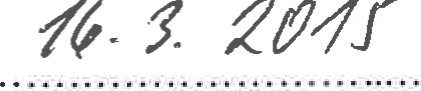 16. 3. 2015